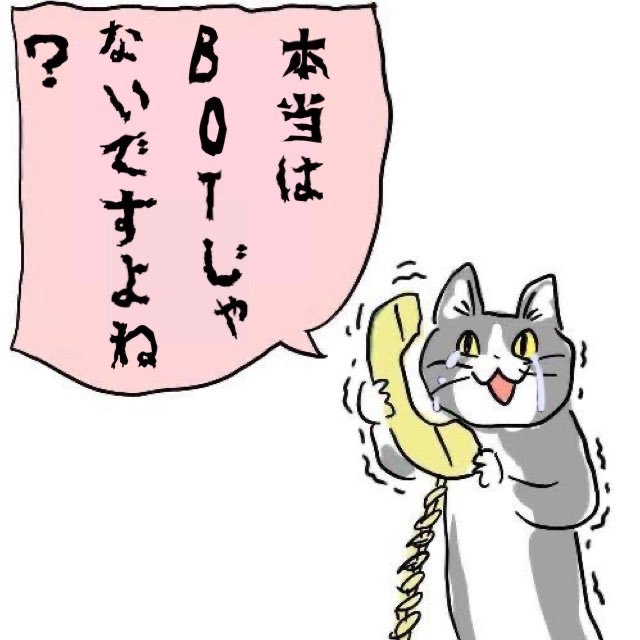 本当は
BOTじゃ
ないですよね
?